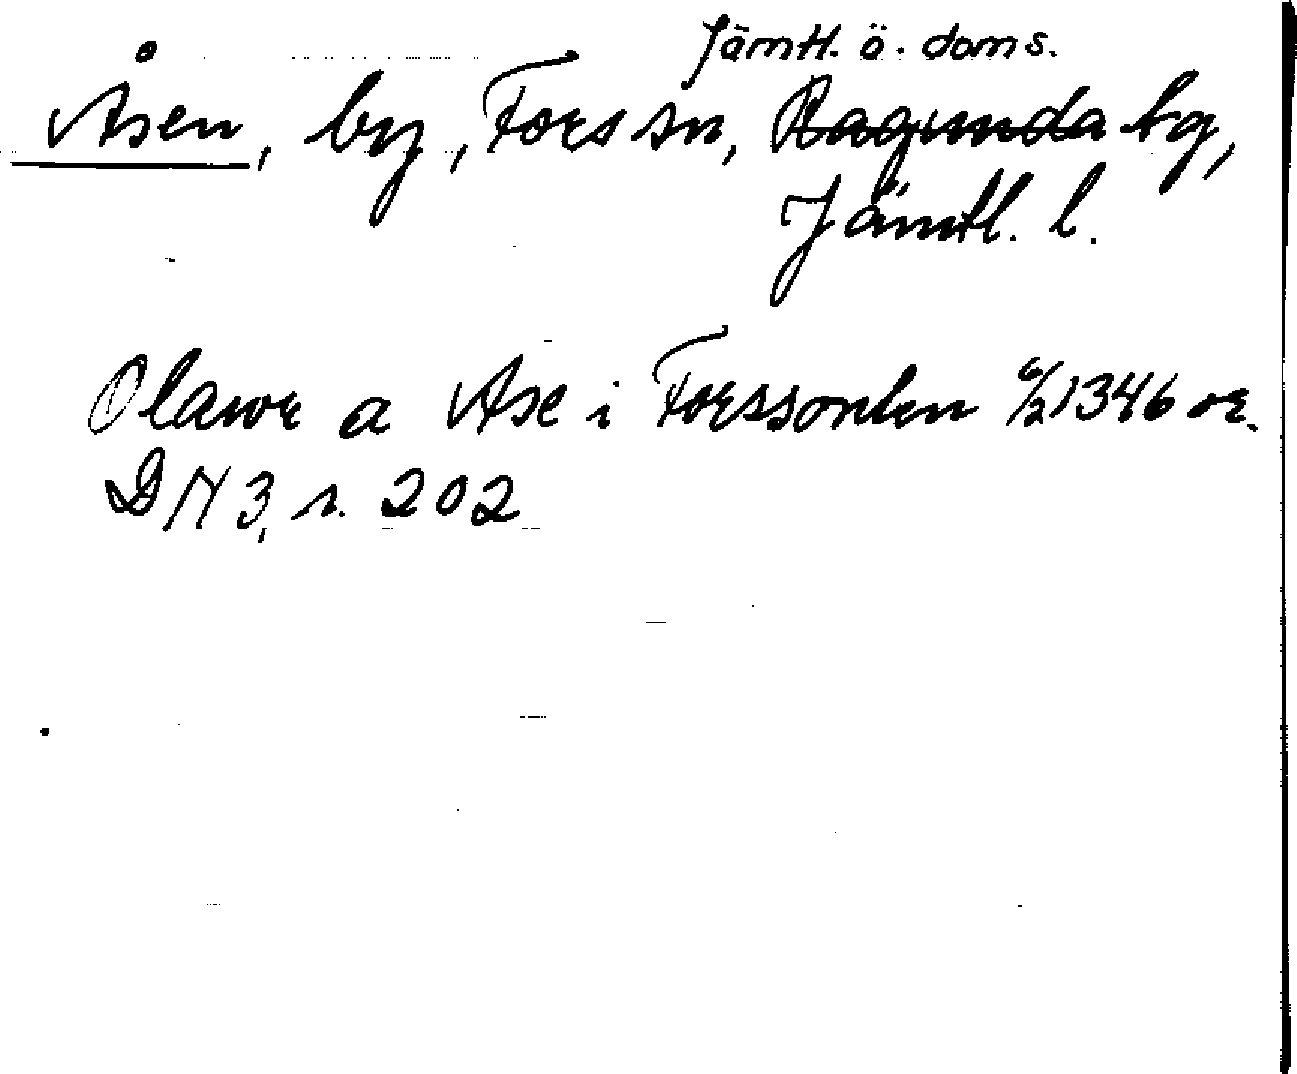 Jämtl. ö. doms.
Åsen, by, Fors sn, Ragunda tg,
Jämtl. l.
Olawr a Ase i Forssonlen 6/2 1346 or.
DN 3, s. 202